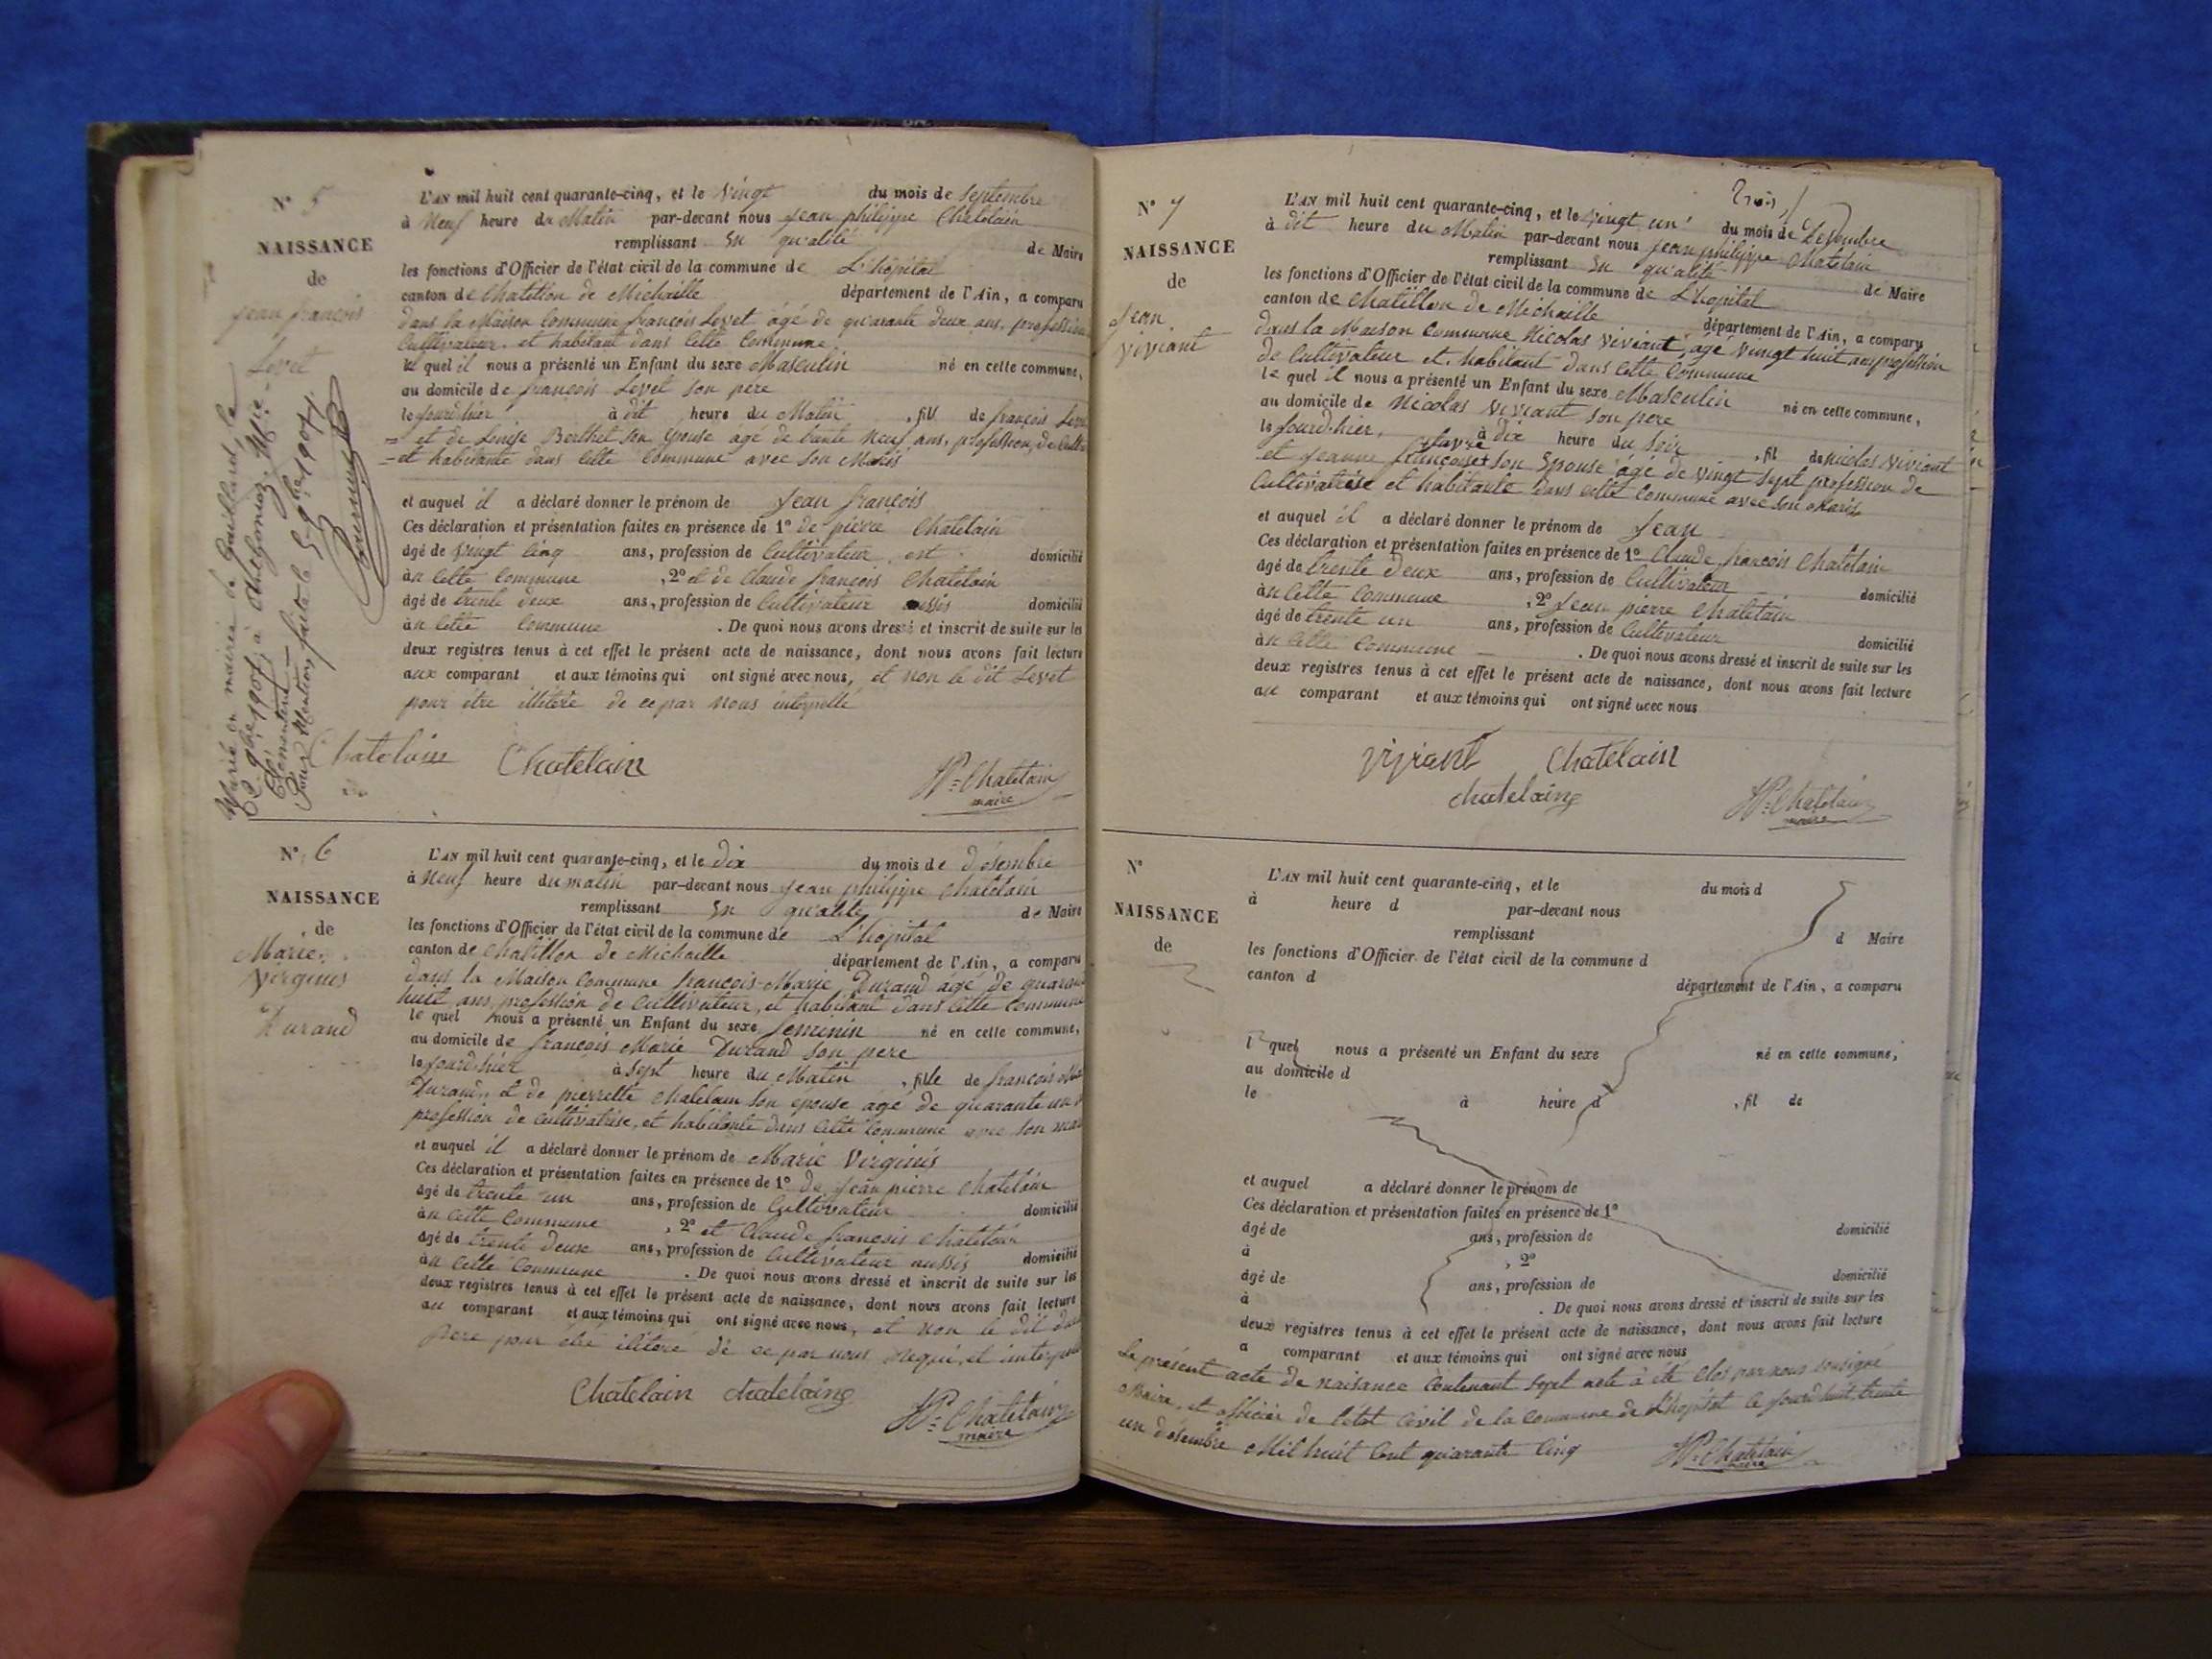 N° 5
NAISSANCE
de
Jean françois
Levet
L'AN mil huit cent quarante-cinq, et le Vingt du mois de Septembre
à Neuf heure du Matin par-devant nous Jean philippe Chatelain
remplissant En qu'alité de Maire
les fonctions d'Officier de l'état civil de la commune de L'hopital
canton de Chatillon de Michaille département de l'Ain, a comparu
dans la Maison Commune françois Levet âgé de quarante deux ans, profession
Cultivateur et habitant dans Cette Commune.
le quel il nous a présenté un Enfant du sexe Masculin né en cette commune,
au domicile de françois Levet son pere
le Jourd'hier à dit heure du Matin, fils de françois Levet
et de Louise Berthet son Epouse agé de trante Neuf ans, profession, de Culti
et habitante dans Cette Commune avec Son Maris
et auquel il a déclaré donner le prénom de Jean françois
Ces déclaration et présentation faites en présence de 1° de pierre Chatelain
âgé de vingt Cinq ans, profession de Cultivateur est domicilié
àn Cette Commune, 2° et de Claude françois Chatelain
âgé de trente deux ans, profession de Cultivateur aussis domicilié
àn Cette Commune. De quoi nous avons dressé et inscrit de suite sur les
deux registres tenus à cet effet le présent acte de naissance, dont nous avons fait lecture
aux comparant et aux témoins qui ont signé avec nous, et non le dit Levet
pour être illetéré de ce par Nous interpellé
Chatelain Chatelain JP=Chatelain
maire
Marié en mairie de Gaillard le
9bre 1907, à
Clémentine
Pour Mention faite le 5 9bre 1907
N° 6
NAISSANCE
de
Marie
Virginies
Durand
L'AN mil huit cent quarante-cinq, et le dix du mois de désembre
à Neuf heure du matin par-devant nous Jean philippe Chatelain
remplissant En qu'alité de Maire
les fonctions d'Officier de l'état civil de la commune de L'hopital
canton de Chatillon de Michaille département de l'Ain, a comparu
dans la Maison Commune françois-Marie Durand âgé de quarante
huit ans profession de Cultivateur, et habitant dans Cette Commune
le quel nous a présenté un Enfant du sexe feminin né en cette commune,
au domicile de françois Marie Durand son pere
le Jourd-hier à sept heure du Matin, fille de françois Ma
Durand, et de pierrette Chatelain son epouse agé de quarante un
profession de Cultivatrise, et habitante dans Cette Commune avec son mari
et auquel il a déclaré donner le prénom de Marie Virginies
Ces déclaration et présentation faites en présence de 1° de Jean pierre Chatelain
âgé de trente un ans, profession de Cultivateur domicilié
àn Cette Commune, 2° et Claude françois Chatelain
âgé de trente deux ans, profession de Cultivateur aussis domicilié
àn Cette Commune. De quoi nous avons dressé et inscrit de suite sur les
deux registres tenus à cet effet le présent acte de naissance, dont nous avons fait lecture
au comparant et aux témoins qui ont signé avec nous, et non le dit
Pere pour être illetéré de ce par nous requi, et interpellé
Chatelain Chatelaine JP=Chatelain
maire
N° 7
NAISSANCE
de
Jean
Viviant
L'AN mil huit cent quarante-cinq, et le vingt un du mois de Désembre
à dit heure du Matin par-devant nous Jean philippe Chatelain
remplissant En qu'alité de Maire
les fonctions d'Officier de l'état civil de la commune de L'hopital
canton de Chatillon de Michaille département de l'Ain, a comparu
dans la Maison Commune Nicolas Viviant, agé Vingt huit ans profession
de Cultivateur et habitant dans Cette Commune
le quel il nous a présenté un Enfant du sexe Masculin né en cette commune,
au domicile de Nicolas Viviant son pere
le Jourd-hier, à dix heure du Soir, fil de Nicolas Viviant
et Jeanne françoise son Epouse agé de Vingt Sept profession de
Cultivatrise et habitante dans cette Commune avec son Maris
et auquel il a déclaré donner le prénom de Jean
Ces déclaration et présentation faites en présence de 1° Claude françois Chatelain
âgé de trente deux ans, profession de Cultivateur domicilié
àn Cette Commune, 2° Jean pierre Chatelain
âgé de trente un ans, profession de Cultivateur domicilié
àn Cette Commune. De quoi nous avons dressé et inscrit de suite sur les
deux registres tenus à cet effet le présent acte de naissance, dont nous avons fait lecture
au comparant et aux témoins qui ont signé avec nous
Viviant Chatelain
Chatelaine JP=Chatelain
maire
N°
NAISSANCE
de
L'AN mil huit cent quarante-cinq, et le du mois d
à heure d par-devant nous
remplissant d Maire
les fonctions d'Officier de l'état civil de la commune d
canton d département de l'Ain, a comparu
l quel nous a présenté un Enfant du sexe né en cette commune,
au domicile d
le à heure d, fil de
et auquel a déclaré donner le prénom de
Ces déclaration et présentation faites en présence de 1°
âgé de ans, profession de domicilié
à, 2°
âgé de ans, profession de domicilié
à. De quoi nous avons dressé et inscrit de suite sur les
deux registres tenus à cet effet le présent acte de naissance, dont nous avons fait lecture
a comparant et aux témoins qui ont signé avec nous
Le présent acte de naisance Contenant Sept acte à été Clos par nous Sousigné
Maire, et officier de l'état Civil de la Commune de L'hopital le jourd'huit, trente
un désembre Mil huit Cent quarante Cinq JP=Chatelain
maire